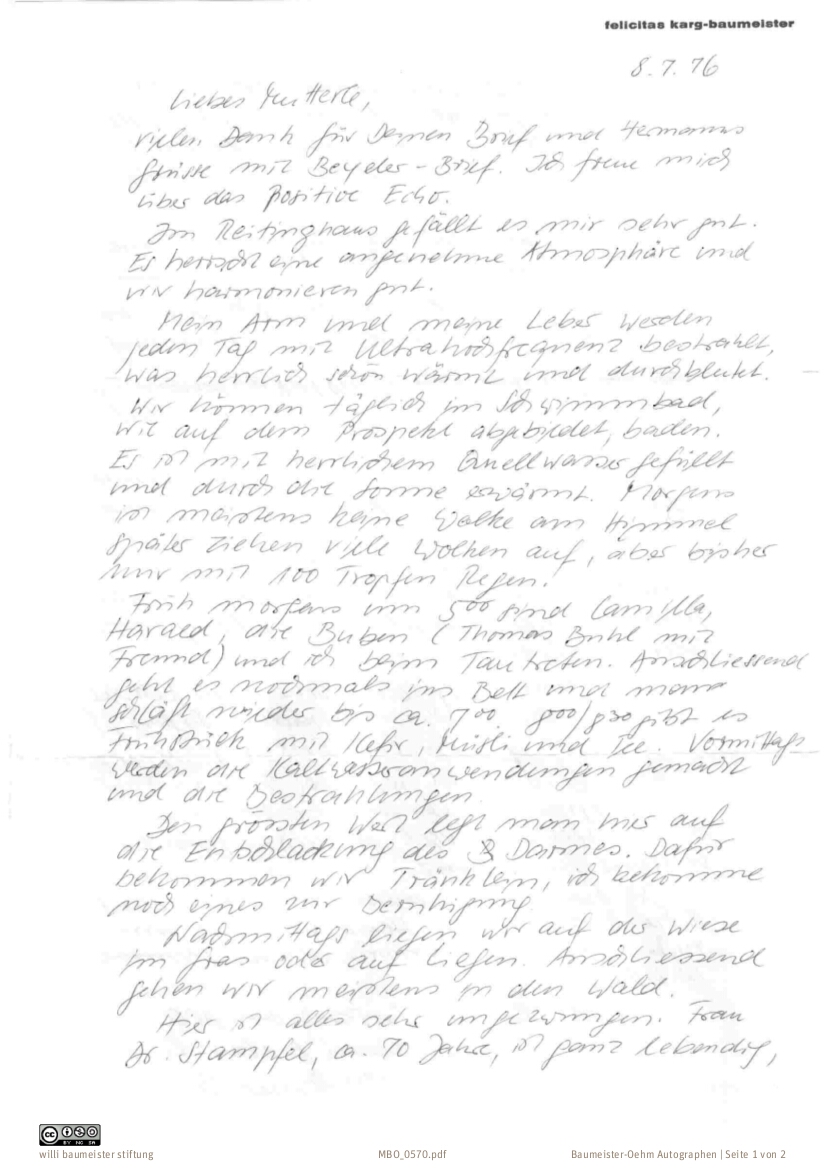 felicitas karg-baumeister
8.7.76
Liebes Mutterle,
vielen Dank für Deinen Brief und Hermanns
Grüsse mit Beyeler-Brief. Ich freue mich
über das positive Echo.
Im Reitinghaus gefällt es mir sehr gut.
Es herrscht eine angenehme Atmosphäre und
wir harmonieren gut.
Mein Arm und meine Leber werden
jeden Tag mit Ultrahochfrequenz bestrahlt,
was herrlich schön wärmt und durchblutet.
Wir können täglich im Schwimmbad,
wie auf dem Prospekt abgebildet, baden.
Es ist mit herrlichem Quellwasser gefüllt
und durch die Sonne erwärmt. Morgens
ist meistens keine Wolke am Himmel
später ziehen viele Wolken auf, aber bisher
nur mit 100 Tropfen Regen.
Früh morgens um 5 00 sind Camilla,
Harald, die Buben (Thomas Buhl mit
Freund) und ich beim Tautreten. Anschliessend
geht es nochmals ins Bett und man
schläft wieder bis ca. 7 00. 8 00/8 30 gibt es
Frühstück mit Kefir, Müsli und Tee. Vormittags
werden die Kaltwasseranwendungen gemacht
und die Bestrahlungen.
Den grössten Wert legt man hier auf
die Entschlackung des Darmes. Dafür
bekommen wir Tränklein, ich bekomme
noch eines zur Beruhigung
Nachmittags liegen wir auf der Wiese
im Gras oder auf Liegen. Anschliessend
gehen wir meistens in den Wald.
Hier ist alles sehr ungezwungen. Frau
Dr. Stampfel, ca. 70 Jahre, ist ganz lebendig,
CC BY NC SA
willi baumeister stiftung MBO_0570.pdf Baumeister-Oehm Autographen | Seite 1 von 2